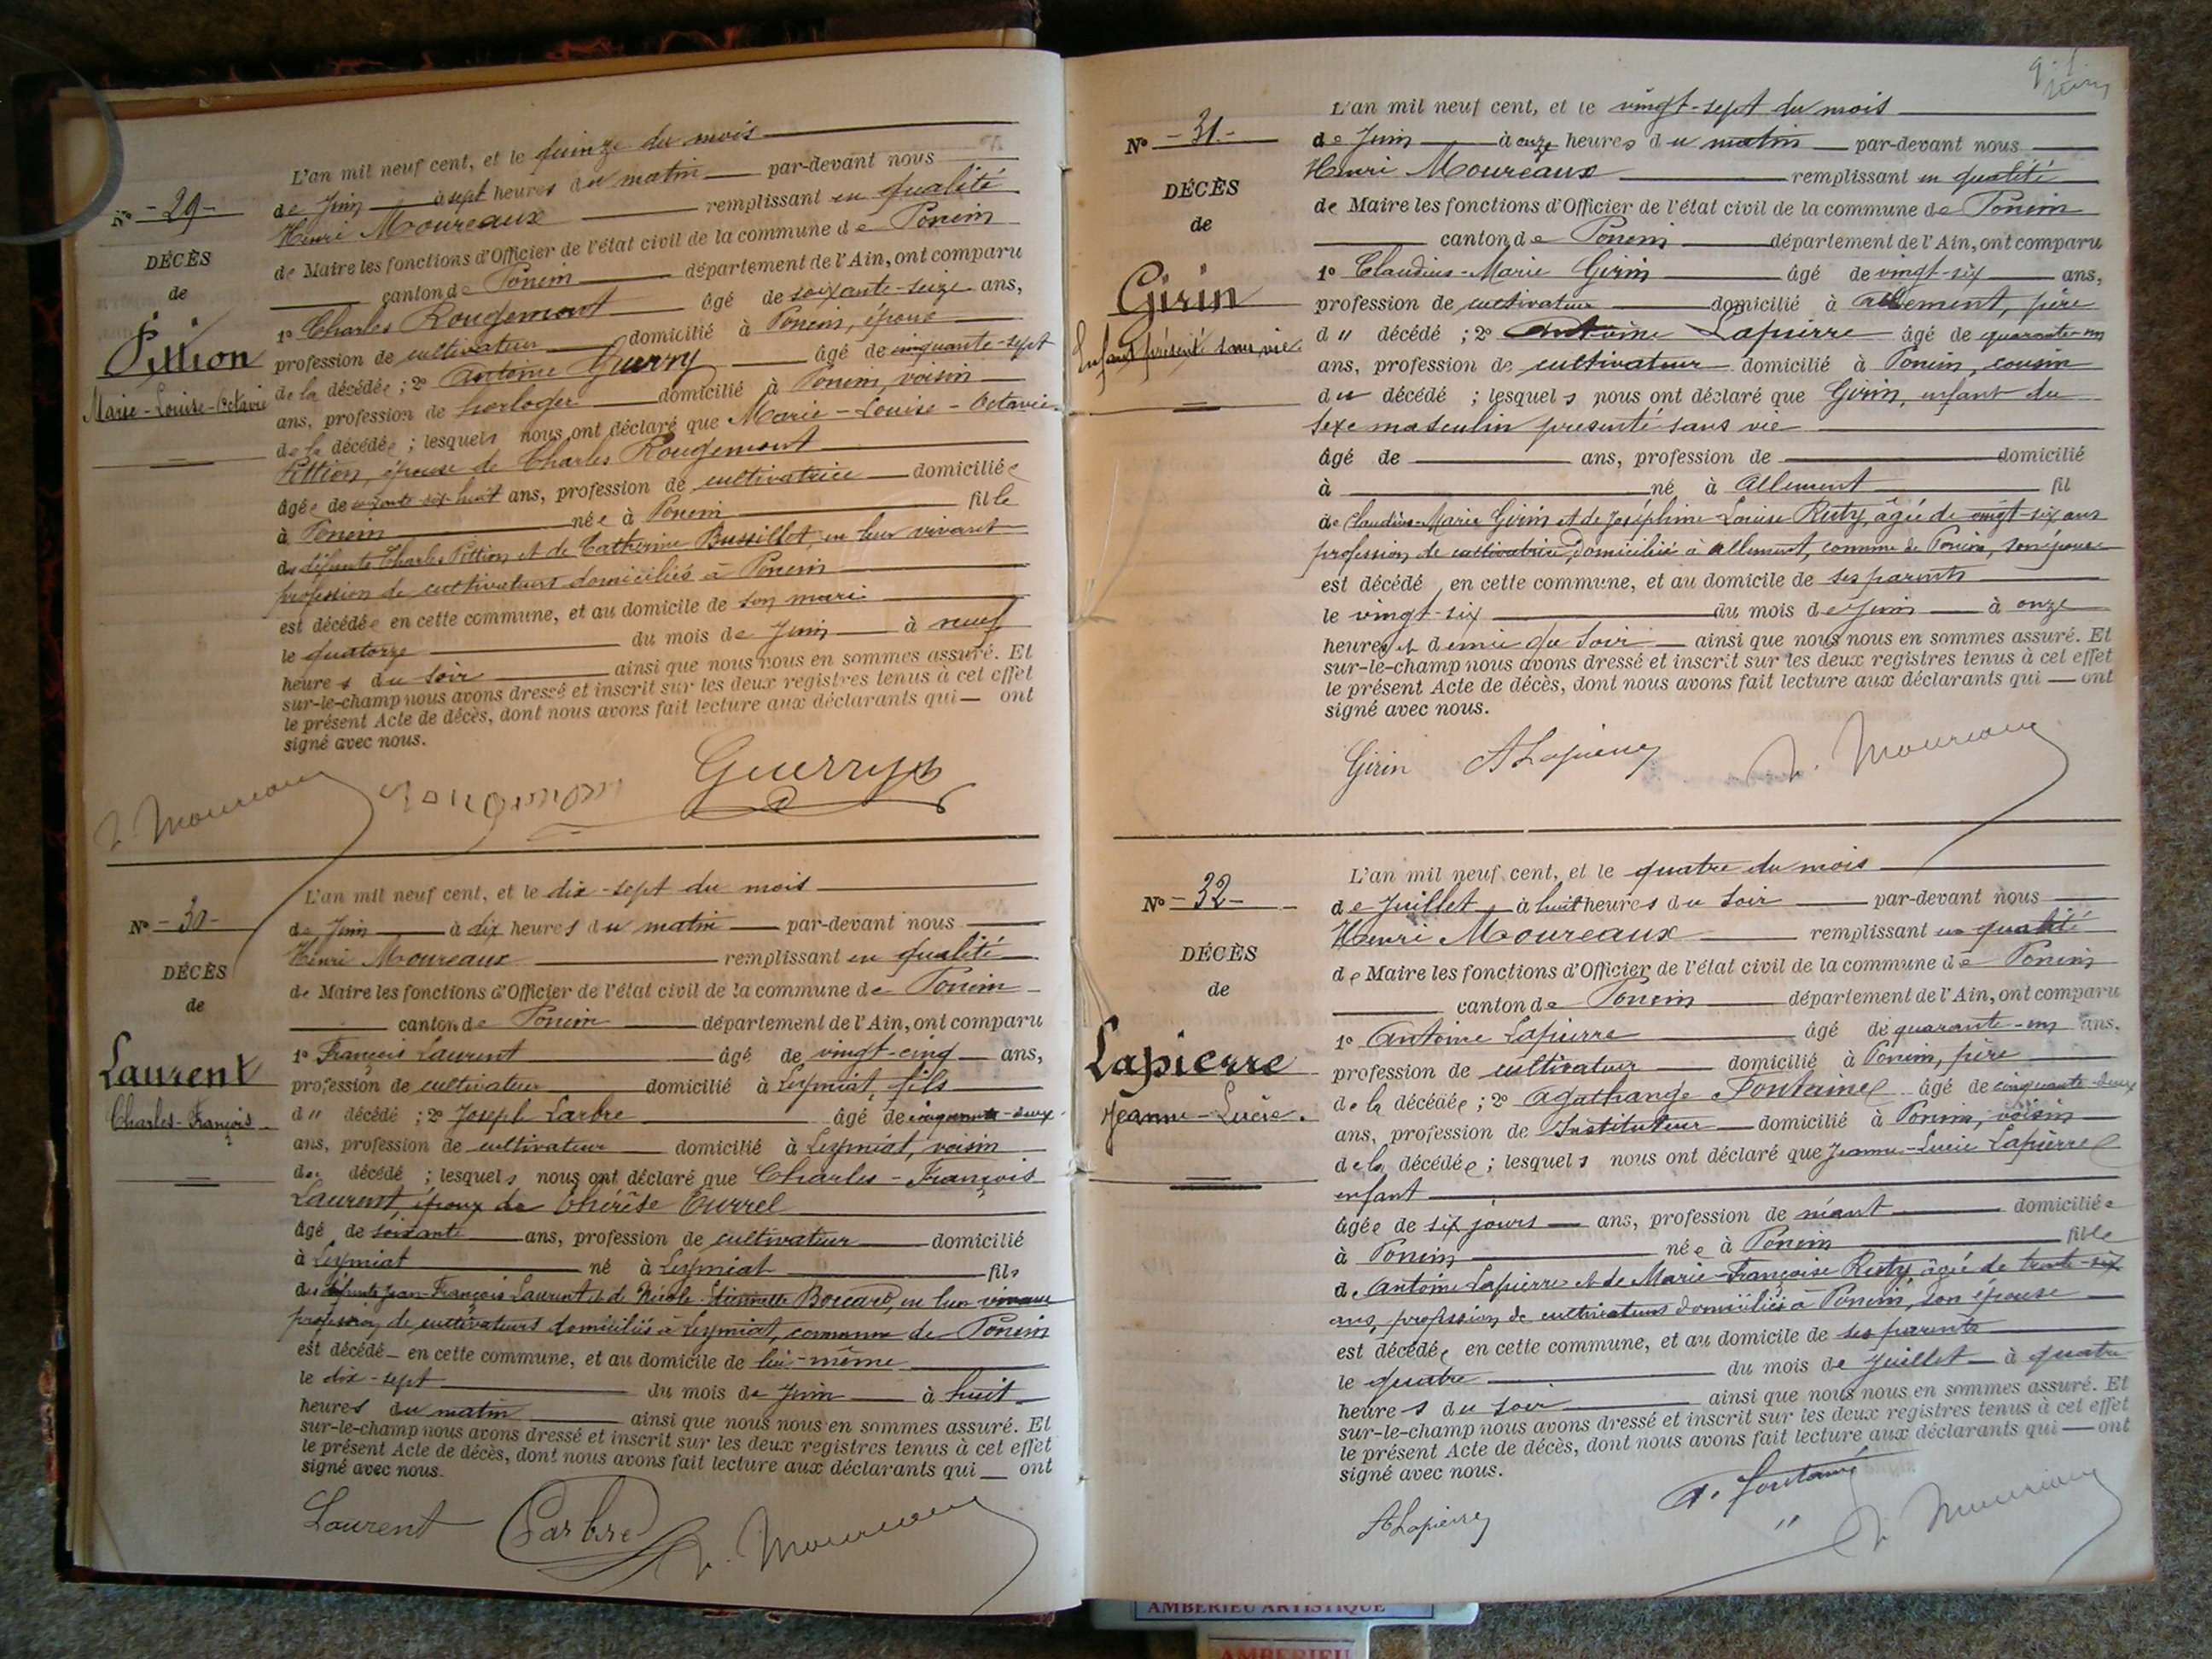 L'an mil neuf cent, et le quinze du mois
de Juin à sept heures du matin par-devant nous
Henri Moureaux remplissant en qualité
de Maire les fonctions d'Officier de l'état civil de la commune de Poncin
canton de Poncin département de l'Ain, ont comparu
1º Charles Rougemont âgé de soixante-seize ans,
profession de cultivateur domicilié à Poncin, époux
de la décédée ; 2º Antoine Guerry âgé de cinquante-sept
ans, profession de horloger domicilié à Poncin, voisin
de la décédée ; lesquels nous ont déclaré que Marie-Louise-Octavie
Pittion, épouse de Charles Rougemont
âgée de ans, profession de cultivatrice domiciliée
à Poncin née à Poncin fille
de défunts Charles Pittion et de Catherine Bussillet, en leur vivant
profession de cultivateurs domiciliés à Poncin
est décédée en cette commune, et au domicile de son mari
le quatorze du mois de Juin à neuf
heures du soir ainsi que nous nous en sommes assuré. Et
sur-le-champ nous avons dressé et inscrit sur les deux registres tenus à cet effet
le présent Acte de décès, dont nous avons fait lecture aux déclarants qui — ont
signé avec nous.
Nº -29-
DÉCÈS
de
Pittion
Marie-Louise-Octavie
H. Moureaux Guerry
L'an mil neuf cent, et le dix-sept du mois
de Juin à dix heures du matin par-devant nous
Henri Moureaux remplissant en qualité
de Maire les fonctions d'Officier de l'état civil de la commune de Poncin
canton de Poncin département de l'Ain, ont comparu
1º François Laurent âgé de vingt-cinq ans,
profession de cultivateur domicilié à Leymiat, fils
du décédé ; 2º Joseph Larbre âgé de cinquante-deux
ans, profession de cultivateur domicilié à Leymiat, voisin
du décédé ; lesquels nous ont déclaré que Charles-François
Laurent, époux de Thérèse Turrel
âgé de soixante ans, profession de cultivateur domicilié
à Leymiat né à Leymiat fils
des défunts Jean-François Laurent et de Nicole Bocard, en leur vivant
profession de cultivateurs domiciliés à Leymiat, commune de Poncin
est décédé en cette commune, et au domicile de lui-même
le dix-sept du mois de Juin à huit
heures du matin ainsi que nous nous en sommes assuré. Et
sur-le-champ nous avons dressé et inscrit sur les deux registres tenus à cet effet
le présent Acte de décès, dont nous avons fait lecture aux déclarants qui — ont
signé avec nous.
Nº -30-
DÉCÈS
de
Laurent
Charles-François
Laurent Larbre H. Moureaux
L'an mil neuf cent, et le vingt-sept du mois
de Juin à onze heures du matin par-devant nous
Henri Moureaux remplissant en qualité
de Maire les fonctions d'Officier de l'état civil de la commune de Poncin
canton de Poncin département de l'Ain, ont comparu
1º Claudius-Marie Girin âgé de vingt-six ans,
profession de cultivateur domicilié à Allement, père
du décédé ; 2º Antoine Lapierre âgé de quarante-un
ans, profession de cultivateur domicilié à Poncin, cousin
du décédé ; lesquels nous ont déclaré que Girin, enfant du
sexe masculin présenté sans vie
âgé de ans, profession de domicilié
à né à Allement fil
de Claudius-Marie Girin et de Joséphine-Louise Ruty, âgée de vingt-six ans
profession de cultivatrice, domiciliée à Allement, commune de Poncin, son épouse
est décédé en cette commune, et au domicile de ses parents
le vingt-six du mois de Juin à onze
heures et demie du soir ainsi que nous nous en sommes assuré. Et
sur-le-champ nous avons dressé et inscrit sur les deux registres tenus à cet effet
le présent Acte de décès, dont nous avons fait lecture aux déclarants qui — ont
signé avec nous.
Nº -31-
DÉCÈS
de
Girin
Enfant présenté sans vie
Girin ALapierre H. Moureaux
L'an mil neuf cent, et le quatre du mois
de Juillet à huit heures du soir par-devant nous
Henri Moureaux remplissant en qualité
de Maire les fonctions d'Officier de l'état civil de la commune de Poncin
canton de Poncin département de l'Ain, ont comparu
1º Antoine Lapierre âgé de quarante-un ans.
profession de cultivateur domicilié à Poncin, père
de la décédée ; 2º Agathange Fontaine âgé de cinquante-deux
ans, profession de Instituteur domicilié à Poncin, voisin
de la décédée ; lesquels nous ont déclaré que Jeanne-Lucie Lapierre
enfant
âgée de six jours ans, profession de néant domiciliée
à Poncin née à Poncin fille
d'Antoine Lapierre et de Marie-Françoise Ruty, âgée de trente-six
ans, profession de cultivateurs domiciliés à Poncin, son épouse
est décédée en cette commune, et au domicile de ses parents
le quatre du mois de Juillet à quatre
heures du soir ainsi que nous nous en sommes assuré. Et
sur-le-champ nous avons dressé et inscrit sur les deux registres tenus à cet effet
le présent Acte de décès, dont nous avons fait lecture aux déclarants qui — ont
signé avec nous.
Nº -32-
DÉCÈS
de
Lapierre
Jeanne-Lucie.
ALapierre A. Fontaine H. Moureaux
AMBERIEU ARTISTIQUE
AMBERIEU